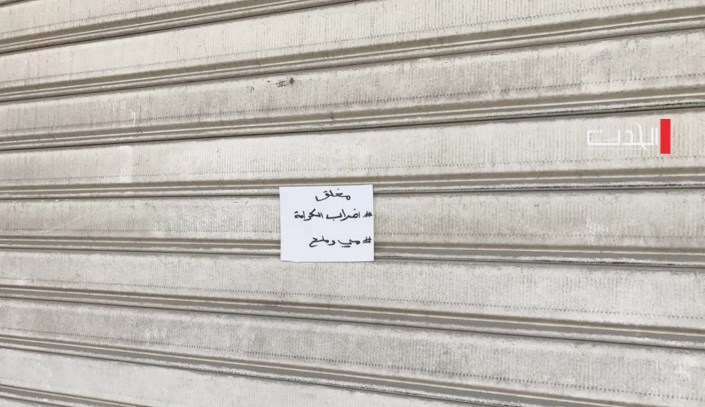 الحدث
مغلق
# اضراب الكرامة
# مي وملح